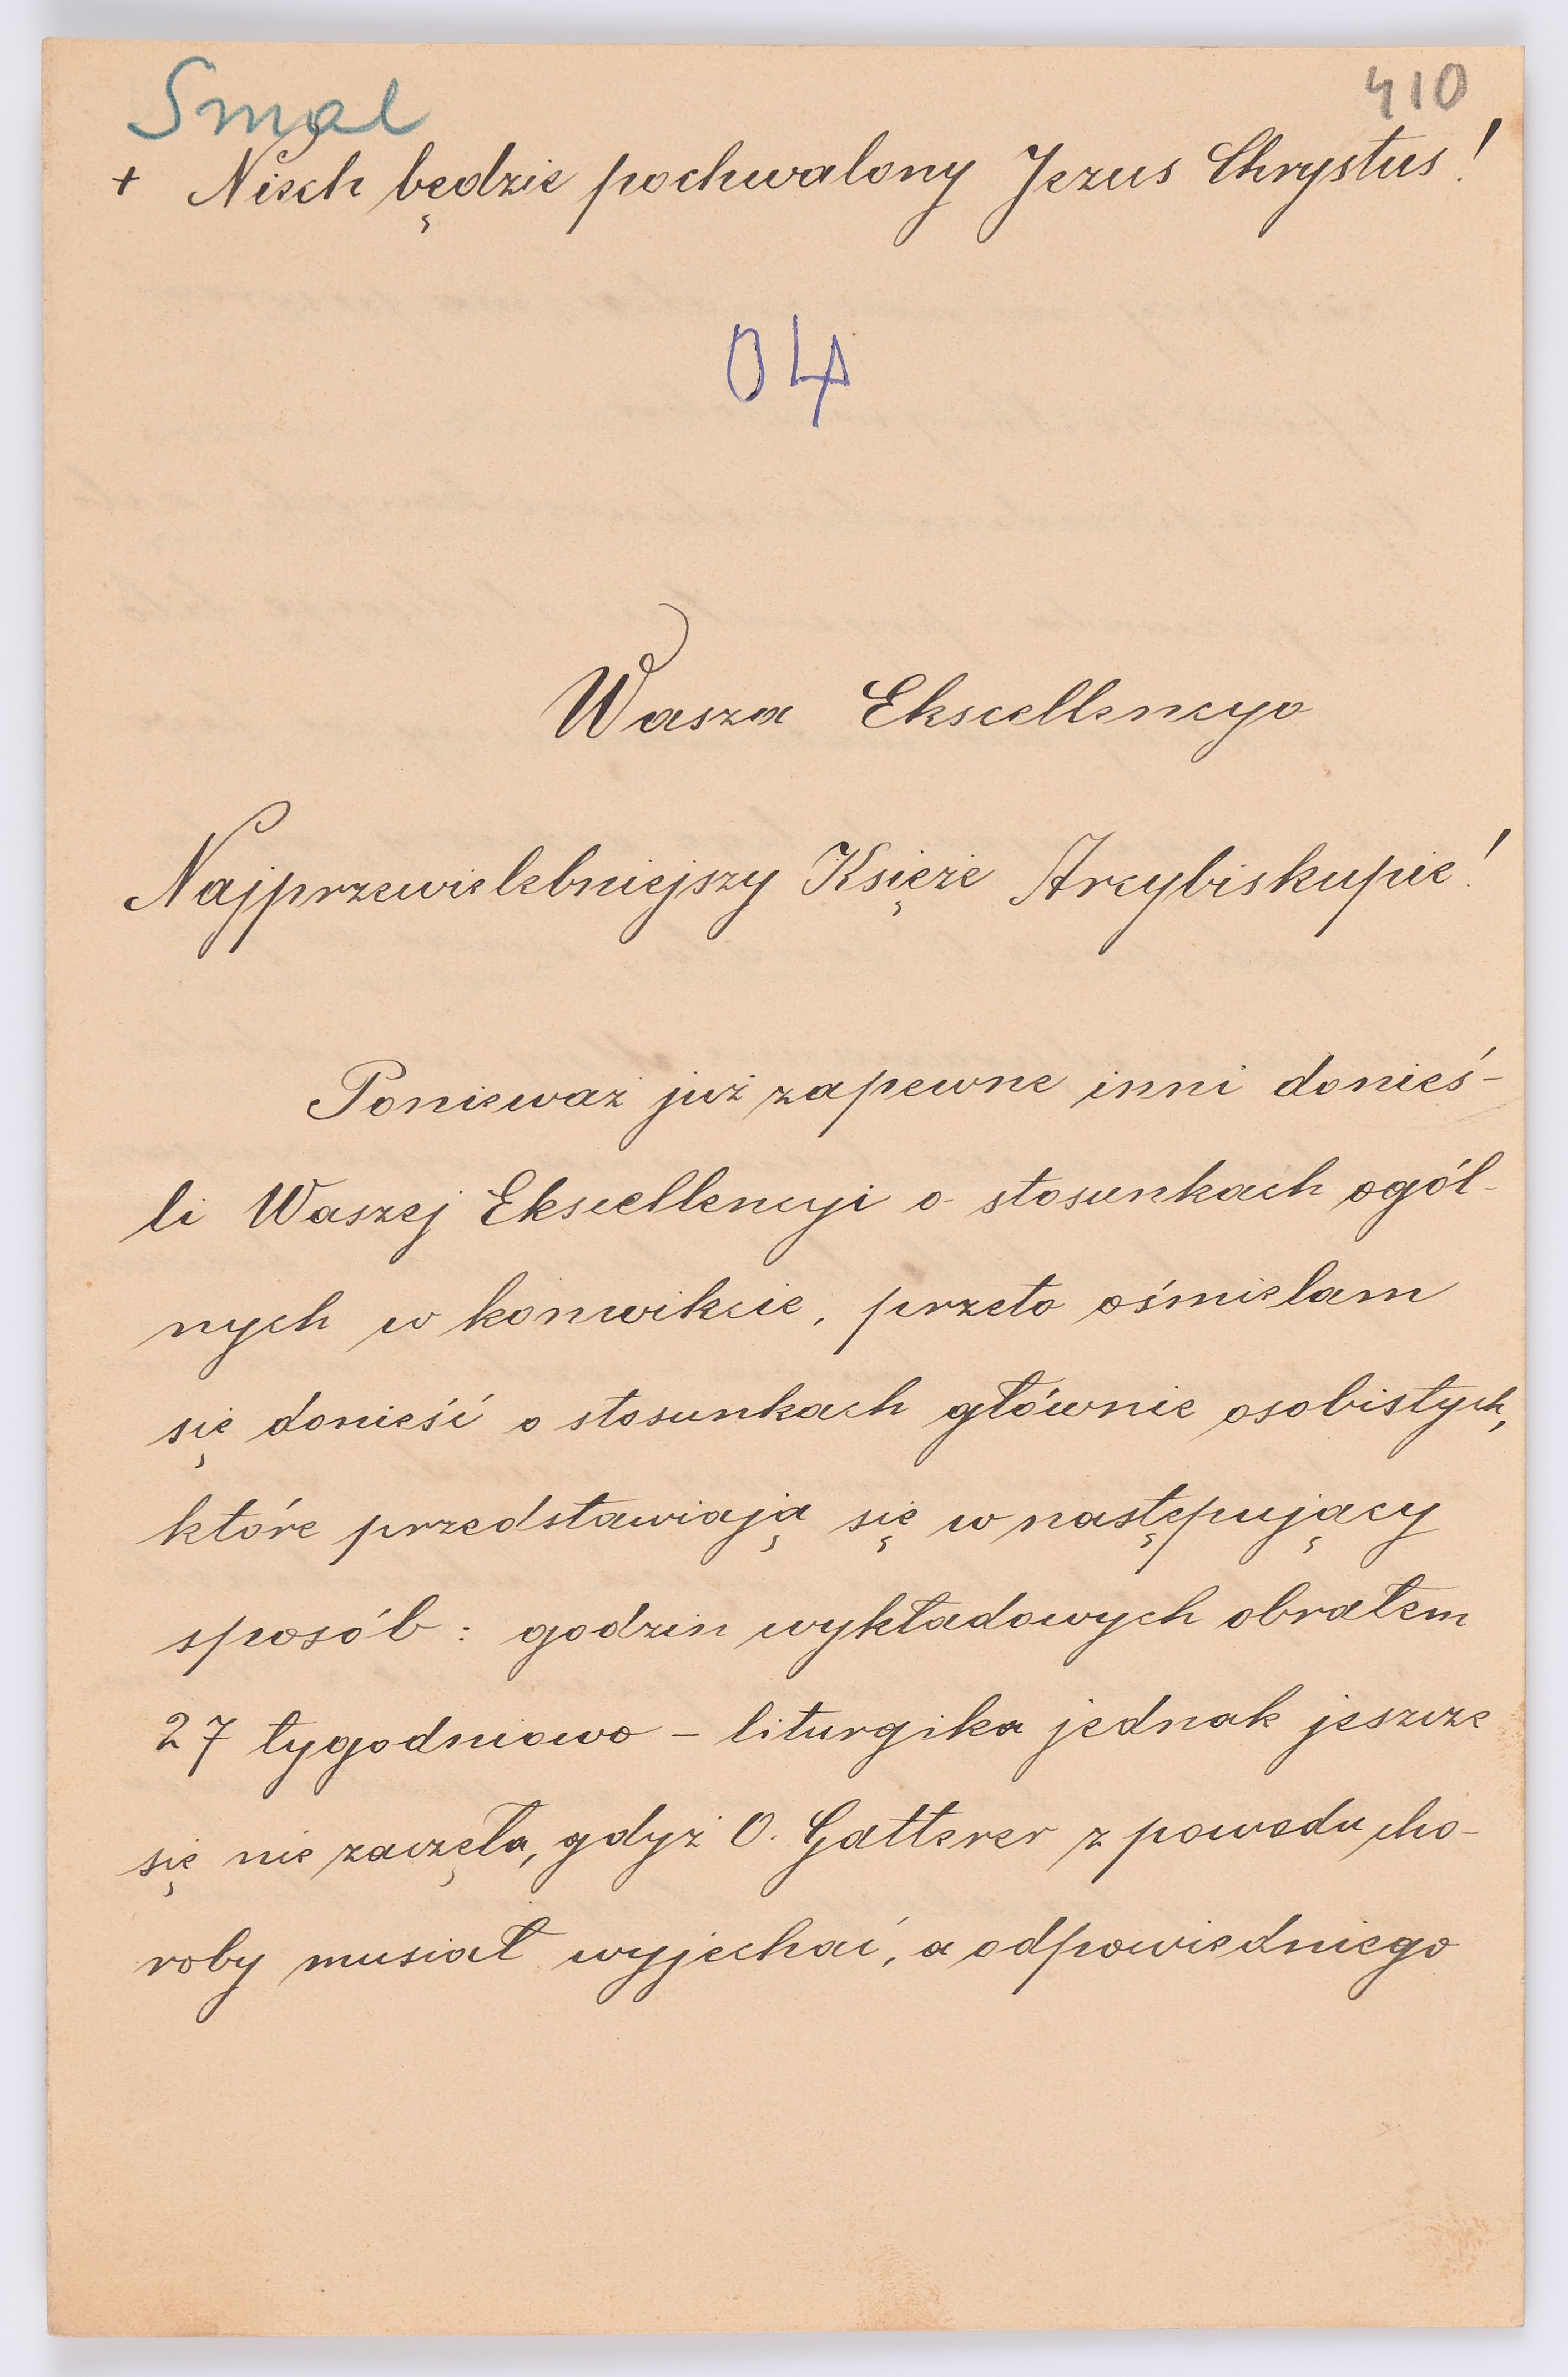 Smal
410
+ Niech będzie pochwalony Jezus Chrystus!
04
Wasza Ekscellencyo
Najprzewielebniejszy Księże Arcybiskupie!
Ponieważ już zapewne inni donieś-
li Waszej Ekscellencyi o stosunkach ogól-
nych w konwikcie, przeto ośmielam
się donieść o stosunkach głównie osobistych,
które przedstawiają się w następujący
sposób: godzin wykładowych obrałem
27 tygodniowo – liturgika jednak jeszcze
się nie zaczęła, gdyż O. Gatterer z powodu cho-
roby musiał wyjechać, a odpowiedniego